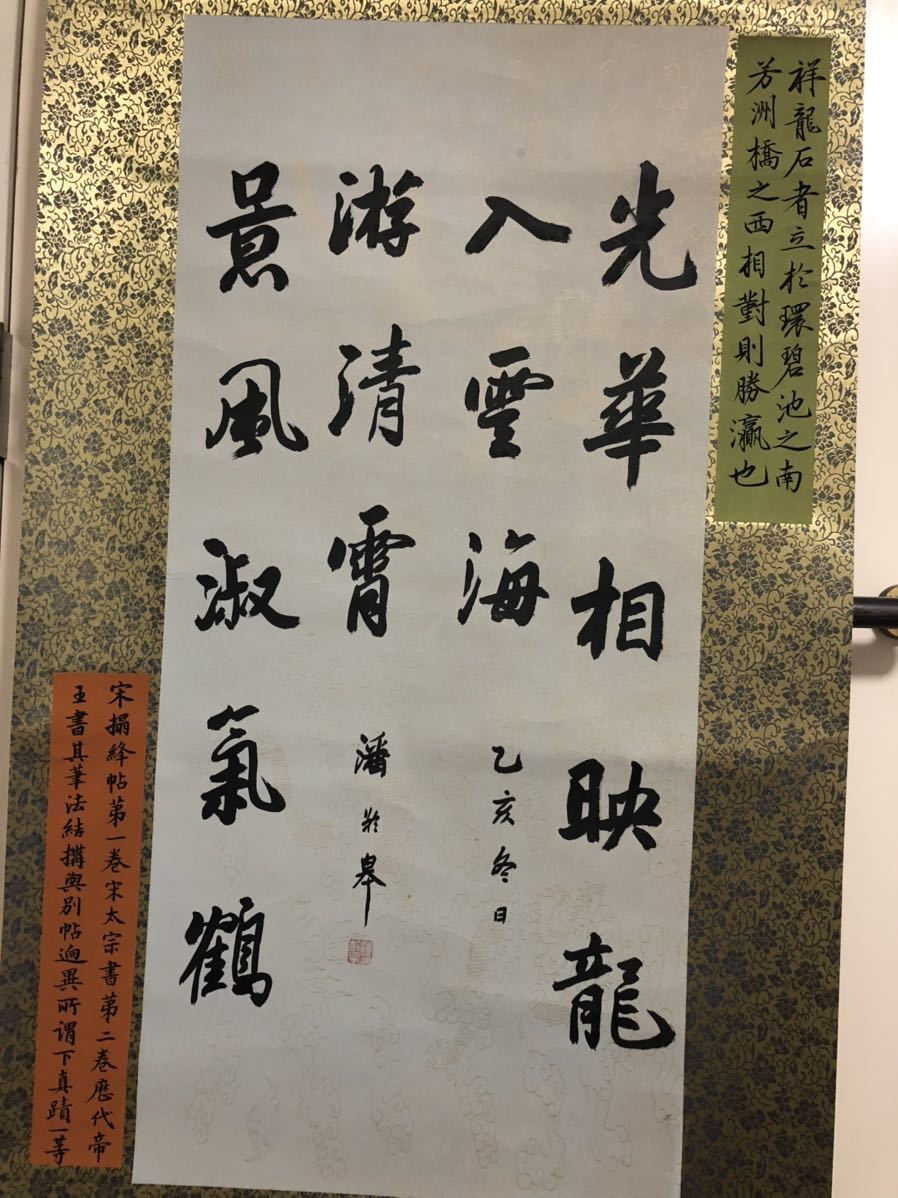 祥龍石者立於環碧池之南
芳洲橋之西相對則勝瀛也
光華相映龍
入雲海
乙亥冬日
景風淑氣鶴
游清霄
潘齡皋
宋搨絳帖第一卷宋太宗書第二卷歷代帝
王書其筆法結搆與別帖迥異所謂下真蹟一等